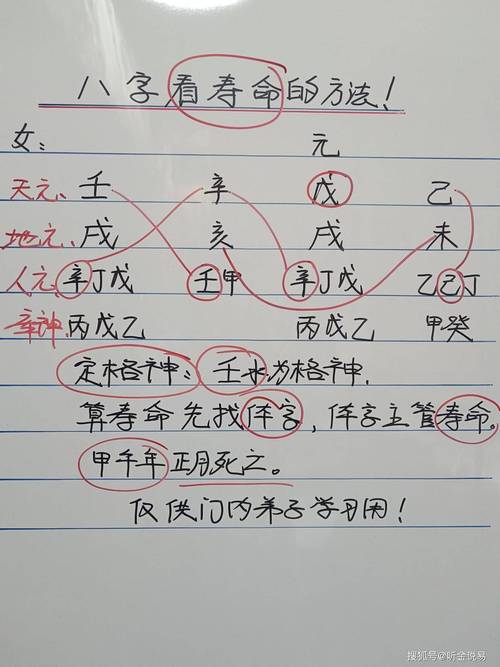 八字看寿命的方法!
女: 元
天元、壬 辛 戊 己
地元、戌 亥 戌 未
人元、辛丁戊 壬甲 辛丁戊 乙己丁
丙戊乙 丙戊乙 甲癸
定格神: 壬水为格神,
算寿命先找伴字, 伴字主管寿命。
甲午年 正月死亡。
仅供门内弟子学习用!
搜狐号@听金说易